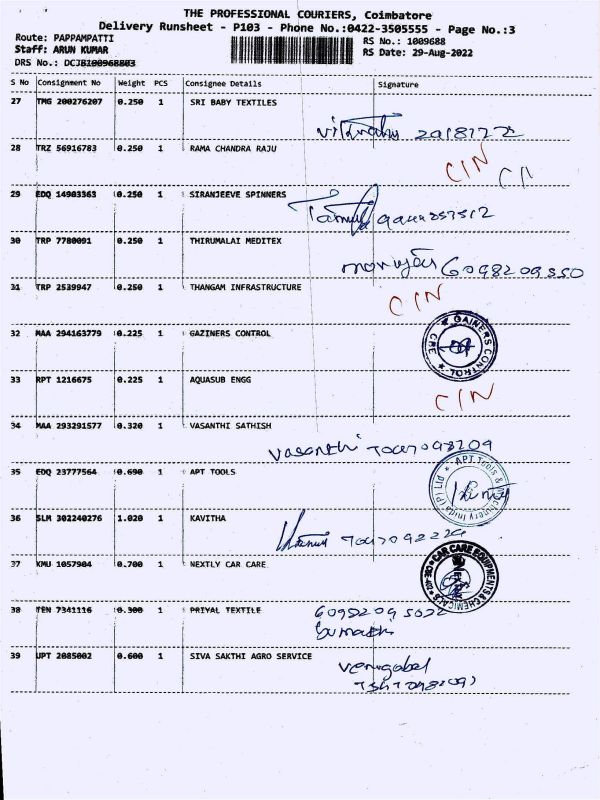 THE PROFESSIONAL COURIERS, Coimbatore
Delivery Runsheet - P103 - Phone No.:0422-3505555 - Page No.:3
Route: PAPPAMPATTI
RS No.: 1009688
Staff: ARUN KUMAR
RS Date: 29-Aug-2022
DRS No.:
S No Consignment No Weight PCS Consignee Details Signature
27 TMG 200276207 0.250 1 SRI BABY TEXTILES
28 TRZ 56916783 0.250 1 RAMA CHANDRA RAJU
CIN
29 EDQ 14903363 0.250 1 SIRANJEEVE SPINNERS
30 TRP 7780091 0.250 1 THIRUMALAI MEDITEX
6098209550
31 TRP 2539947 0.250 1 THANGAM INFRASTRUCTURE
CIN
32 MAA 294163779 0.225 1 GAZINERS CONTROL
GAINERS CONTROL CBE
33 RPT 1216675 0.225 1 AQUASUB ENGG
CIN
34 MAA 293291577 0.320 1 VASANTHI SATHISH
Vasanthi
35 EDQ 23777564 0.690 1 APT TOOLS
APT Tools & Machinery India (P) Ltd
36 SLM 302240276 1.020 1 KAVITHA
37 KMU 1057904 0.700 1 NEXTLY CAR CARE
CAR CARE EQUIPMENTS & CHEMICALS
38 TEN 7341116 0.300 1 PRIYAL TEXTILE
Sumathi
39 UPT 2085002 0.600 1 SIVA SAKTHI AGRO SERVICE
Venugobal